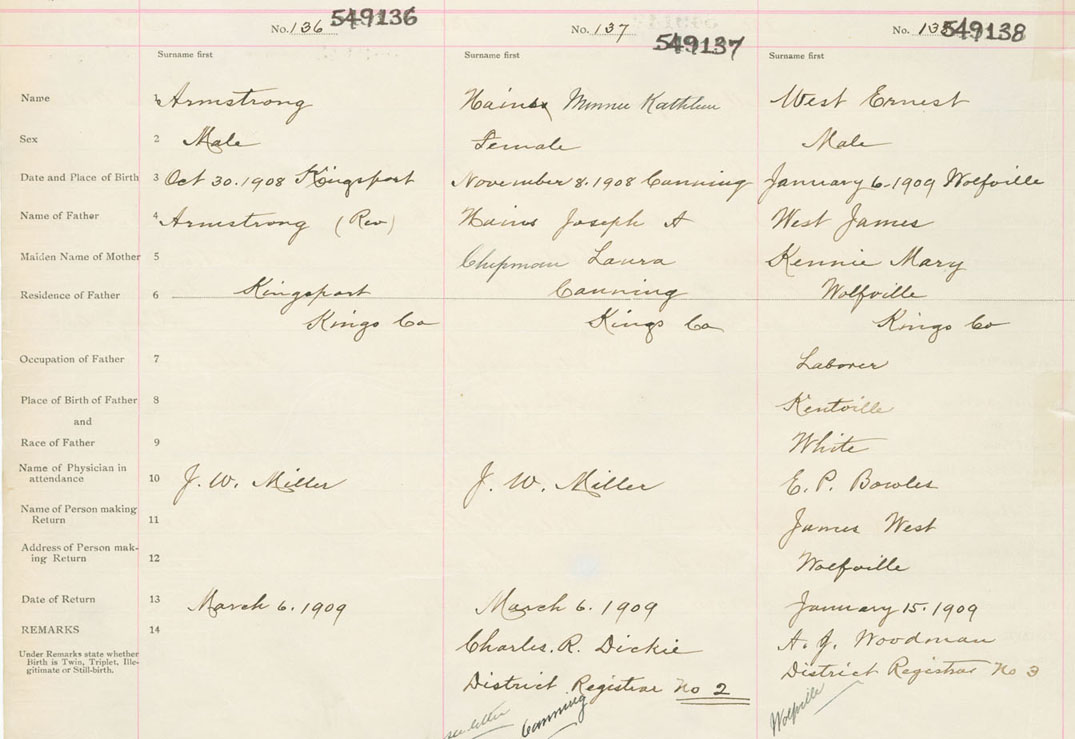 No. 136 549136 No. 137 549137 No. 138 549138
Surname first Surname first Surname first
Name 1 Armstrong Hains Minnie Kathleen West Ernest
Sex 2 Male Female Male
Date and Place of Birth 3 Oct 30. 1908 Kingsport November 8. 1908 Canning January 6 - 1909 Wolfville
Name of Father 4 Armstrong (Rev) Hains Joseph A West James
Maiden Name of Mother 5 Chipman Laura Rennie Mary
Residence of Father 6 Kingsport Canning Wolfville
Kings Co Kings Co Kings Co
Occupation of Father 7 Laborer
Place of Birth of Father 8 Kentville
and
Race of Father 9 White
Name of Physician in
attendance 10 J. W. Miller J. W. Miller E. P. Bowles
Name of Person making
Return 11 James West
Address of Person mak-
ing Return 12 Wolfville
Date of Return 13 March 6. 1909 March 6. 1909 January 15. 1909
REMARKS 14 Charles. R. Dickie A. J. Woodman
Under Remarks state whether
Birth is Twin, Triplet, Ille-
gitimate or Still-birth.
District Registrar No 2 District Registrar No 3
see letter Canning Wolfville